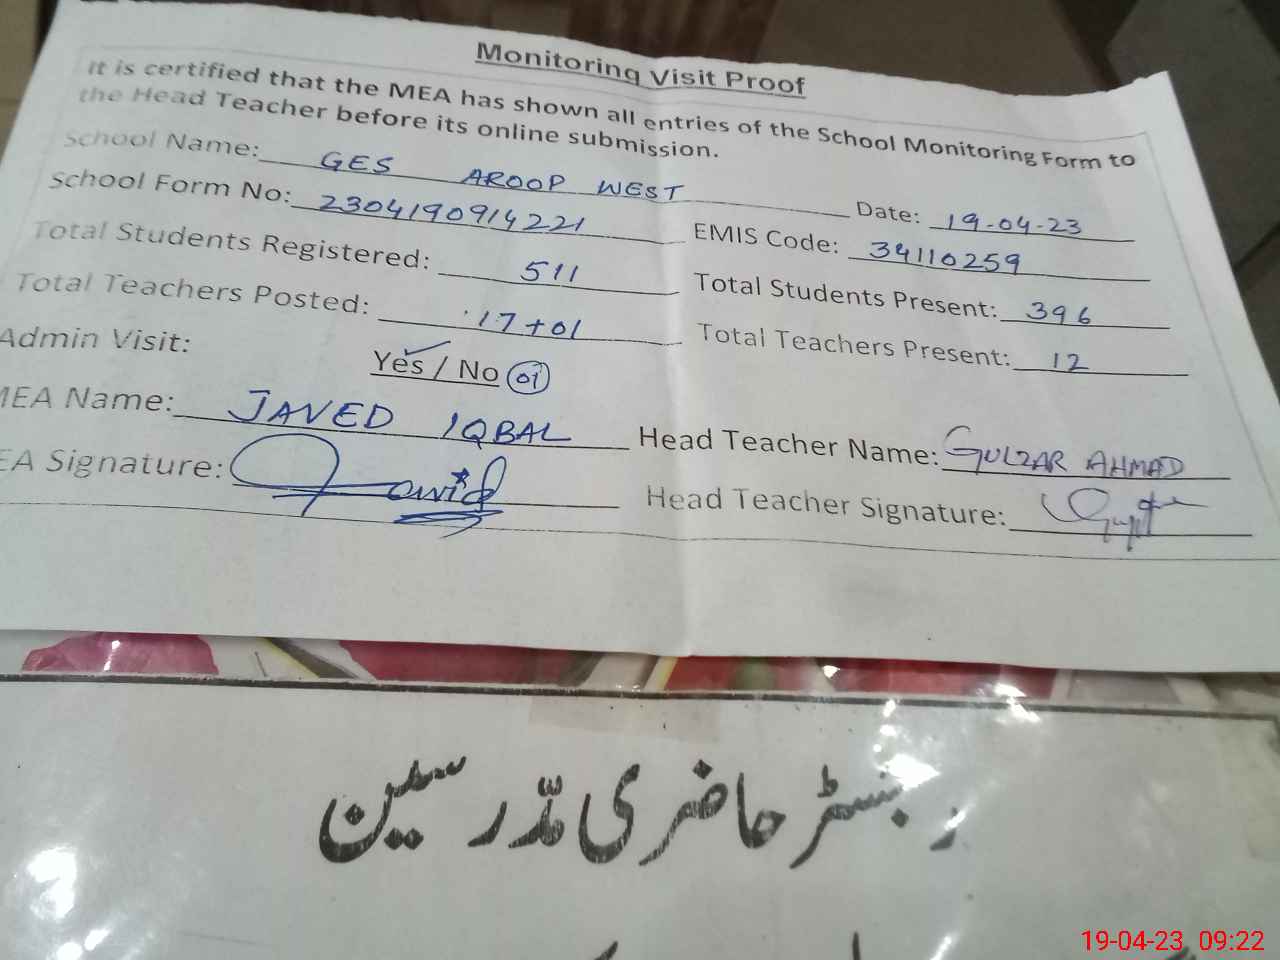 Monitoring Visit Proof
It is certified that the MEA has shown all entries of the School Monitoring Form to
the Head Teacher before its online submission.
School Name: GES AROOP WEST Date: 19-04-23
School Form No: 2304190914221 EMIS Code: 34110259
Total Students Registered: 511 Total Students Present: 396
Total Teachers Posted: 17+01 Total Teachers Present: 12
Admin Visit: Yes / No 01
MEA Name: JAVED IQBAL Head Teacher Name: GULZAR AHMAD
EA Signature: Javid Head Teacher Signature:
رجسٹر حاضری مدّرسین
19-04-23 09:22